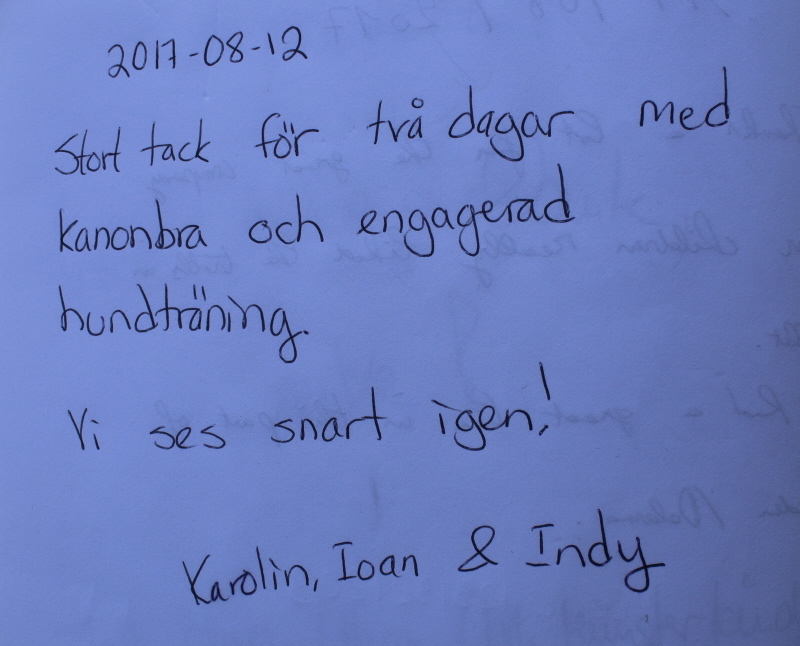 2017-08-12
Stort tack för två dagar med
kanonbra och engagerad
hundträning.
Vi ses snart igen!
Karolin, Ioan & Indy